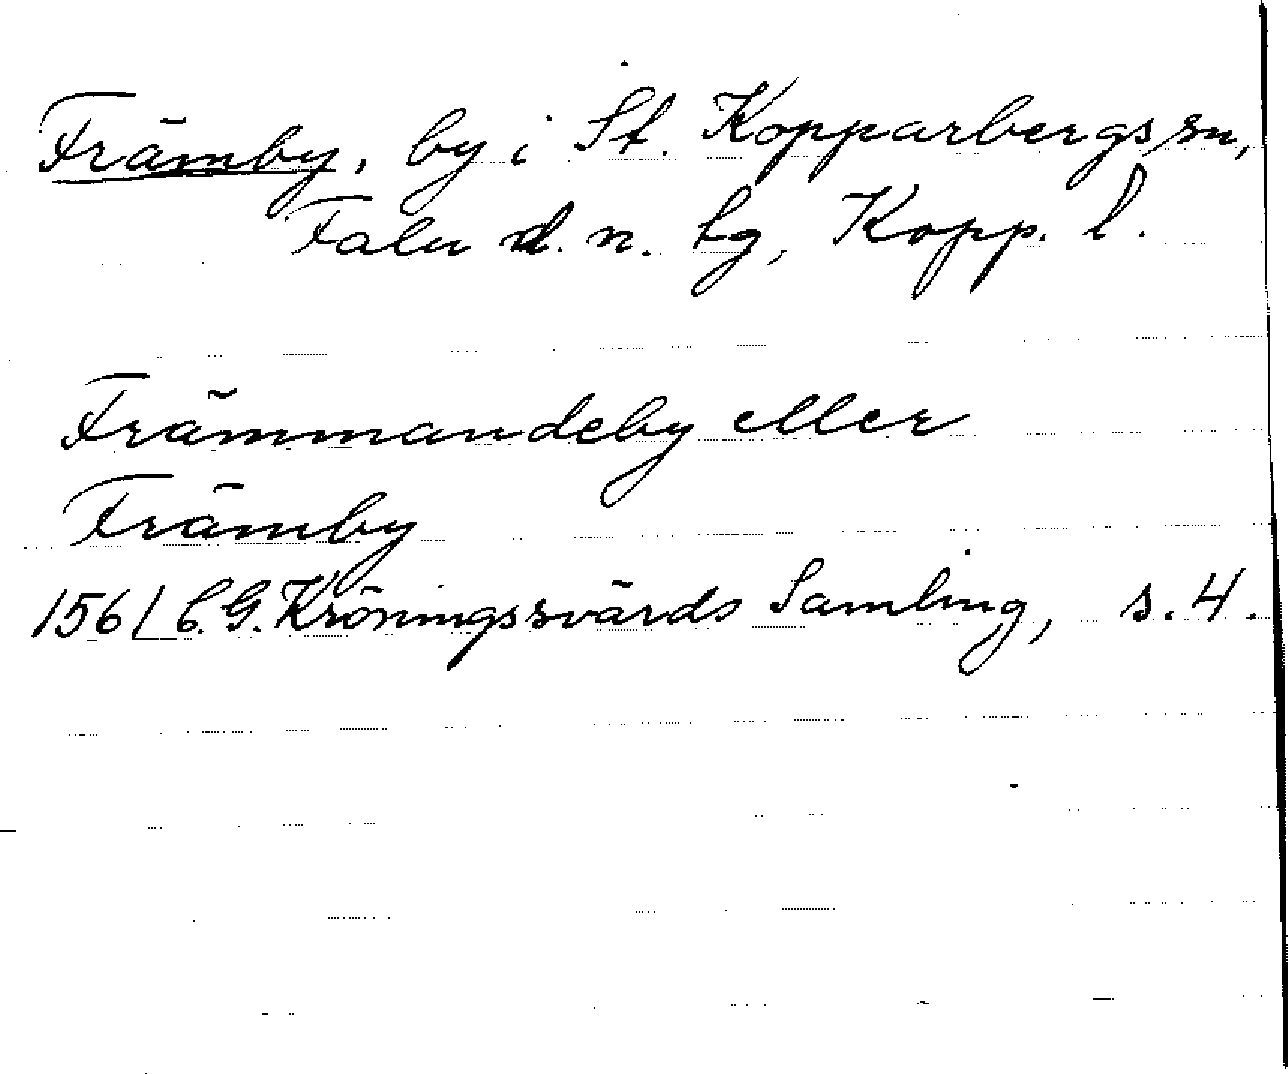 Främby, by i St. Kopparbergs sn,
Falu d. n. tg, Kopp. l.
Främmandeby eller
Främby
1561 C. G. Kröningssvärds Samling, s. 4.